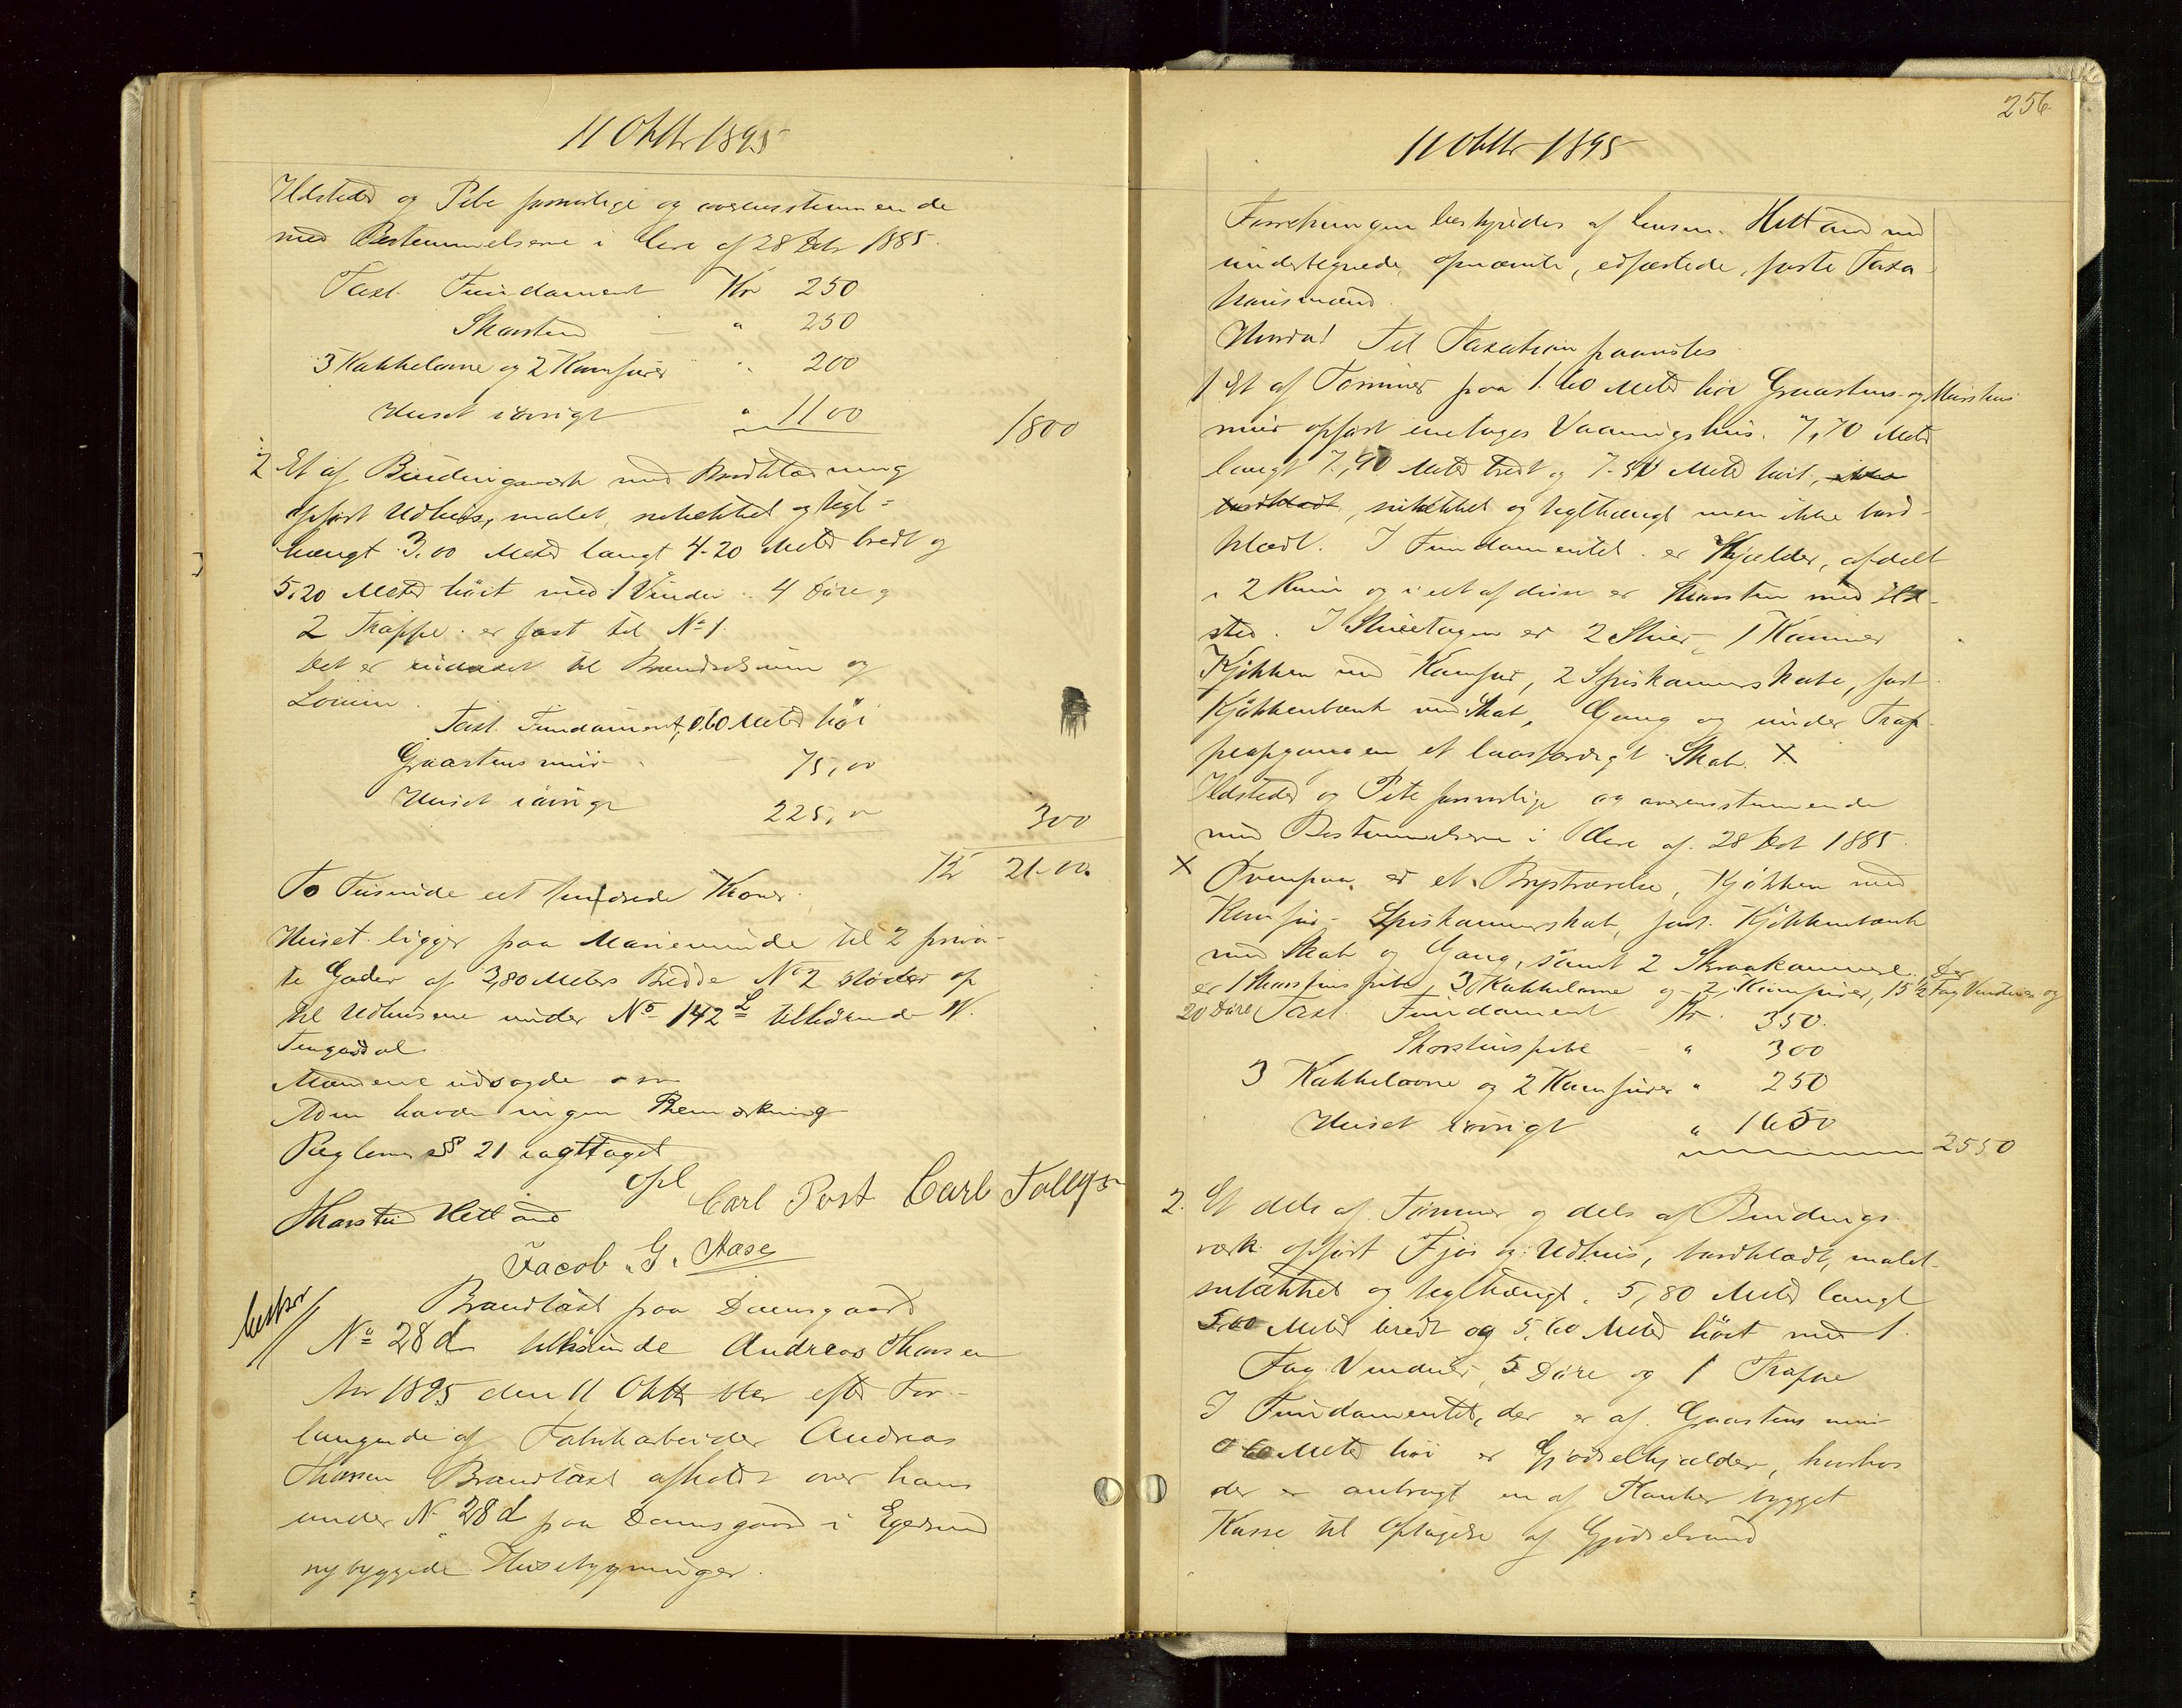 11 Oktbr 1895
Ildsteder og Pibe forsvarlige og overensstemmende
med Bestemmelserne i Circ af 28 Dcbr 1885.
Taxt. Fundament Kr 250
Skorsten — " 250
3 Kakkelovne og 2 Komfurer " 200
Huset iøvrigt " 1100
1800
2 Et af Bindingsværk med Bordklædning
opført Udhus, malet, sutækket og tegl-
hængt 3.00 Meter langt 4.20 Meter bredt og
5,20 Meter høit med 1 Vindu 4 Døre og
2 Trappe er fast til No 1.
Det er indredet til Brændselsrum og
Loium.
Taxt. Fundament, 0.60 Meter høi
Graastensmur — 75,00
Huset iøvrigt 225,00
300
Kr 2100
To Tusinde eet hundrede Kroner.
Huset ligger paa Marieminde til 2 priva-
te Gader af 3,80 Meters Bredde No 2 støder op
til Udhusene under No 142 L tilhørende W.
Tengsdal
Mændene udsagde o s v
Adm havde ingen Bemærkning
Reglem § 21 iagttaget
opl
Thorstein Hetland Carl Post Carl Tollefsen
Jacob G. Aase
Brandtaxt paa Damsgaard
No 28 d tilhørende Andreas Thorsen
Aar 1895 den 11 Oktb blev efter For-
langende af Fabrikarbeider Andreas
Thorsen Brandtaxt afholdt over hans
under No 28 d paa Damsgaard i Egersund
nybyggede Husebygninger.
256
11 Oktbr 1895
Forretningen bestyredes af Lensm. Hetland med
undertegnede, opnævnte, edfæstede, faste Taxa-
tionsmænd.
Hvorda! Til Taxation paavistes
1 Et af Tømmer paa 1.60 Meter høi Graastens- og Murstens
mur opført enetages Vaaningshus. 7,70 Meter
langt 7,90 Meter bredt og 7.50 Meter høit, ikke
bordklædt, sutækket og teglhængt men ikke bord-
klædt. I Fundamentet er Kjælder, afdelt
i 2 Rum og i eet af disse er Skorsten med Ild-
sted. I Stueetagen er 2 Stuer, 1 Kammer
Kjøkken med Komfur, 2 Spiskammerskabe, fast
Kjøkkenbænk med Skab, Gang og under Trap-
peopgangen et laasfærdigt Skab. X
Ildsteder og Pibe forsvarlige og overensstemmende
med Bestemmelserne i Circ af 28 Dcb 1885.
X Ovenpaa er et Kvistværelse, Kjøkken med
Komfur - Spiskammerskab, fast Kjøkkenbænk
med Skab og Gang, samt 2 Skraakammere. Der
er 1 Skorstenspibe, 3 Kakkelovne og 2 Komfurer, 15½ Fag Vinduer og
20 Døre Taxt. Fundament Kr. 350.
Skorstenspibe — " 300
3 Kakkelovne og 2 Komfurer " 250
Huset iøvrigt " 1650
2550
2. Et dels af Tømmer og dels af Bindings-
værk opført Fjøs og Udhus, bordklædt, malet
sutækket og teglhængt, 5,80 Meter langt
5.00 Meter bredt og 5,60 Meter høit med 1
Fag Vinduer, 5 Døre og 1 Trappe
I Fundamentet, der er af Graastens mur
0 60 Meter høi er Gjødselkjælder, hvorhos
der er anbragt en af Planker bygget
Kasse til Optagelse af Gjødselvand